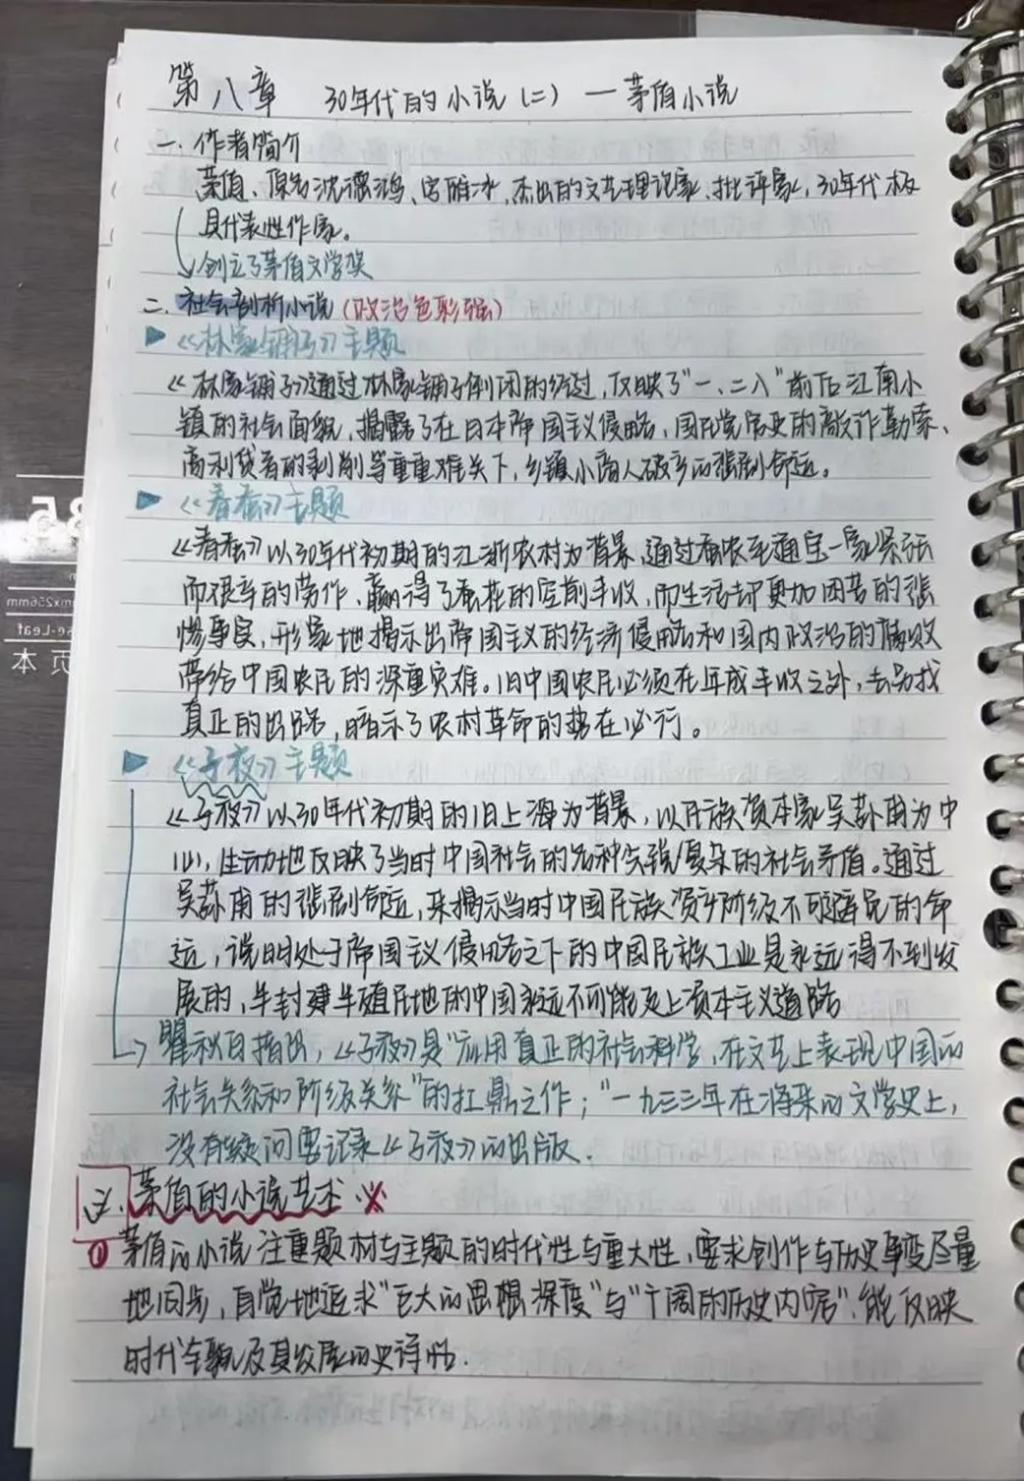 第八章 30年代的小说（二）—茅盾小说
一. 作者简介
茅盾、原名沈德鸿、字雁冰，杰出的文艺理论家、批评家，30年代极
具代表性作家。
创立了茅盾文学奖
二. 社会剖析小说（政治色彩强）
《林家铺子》主题
《林家铺子》通过林家铺子倒闭的经过，反映了“一.二八”前后江南小
镇的社会面貌，揭露了在日本帝国主义侵略，国民党官吏的敲诈勒索、
高利贷者的剥削等重重难关下，乡镇小商人破产的悲剧命运。
《春蚕》主题
《春蚕》以30年代初期的江浙农村为背景，通过蚕农老通宝一家紧张
而艰辛的劳作，赢得了蚕花的空前丰收，而生活却更加困苦的悲
惨事实，形象地揭示出帝国主义的经济侵略和国内政治的腐败
带给中国农民的深重灾难。旧中国农民必须在年成丰收之外，去另找
真正的出路，暗示了农村革命的势在必行。
《子夜》主题
《子夜》以30年代初期的旧上海为背景，以民族资本家吴荪甫为中
心，生动地反映了当时中国社会的各种尖锐复杂的社会矛盾。通过
吴荪甫的悲剧命运，来揭示当时中国民族资产阶级不可避免的命
运，说明处于帝国主义侵略之下的中国民族工业是永远得不到发
展的，半封建半殖民地的中国永远不可能走上资本主义道路
瞿秋白指出，《子夜》是“应用真正的社会科学，在文艺上表现中国的
社会关系和阶级关系”的扛鼎之作；“一九三三年在将来的文学史上，
没有疑问要记录《子夜》的出版.
三. 茅盾的小说艺术 ※
① 茅盾的小说注重题材与主题的时代性与重大性，要求创作与历史事变尽量
地同步，自觉地追求“巨大的思想深度”与“广阔的历史内容”.能反映
时代全貌及其发展的史诗性.